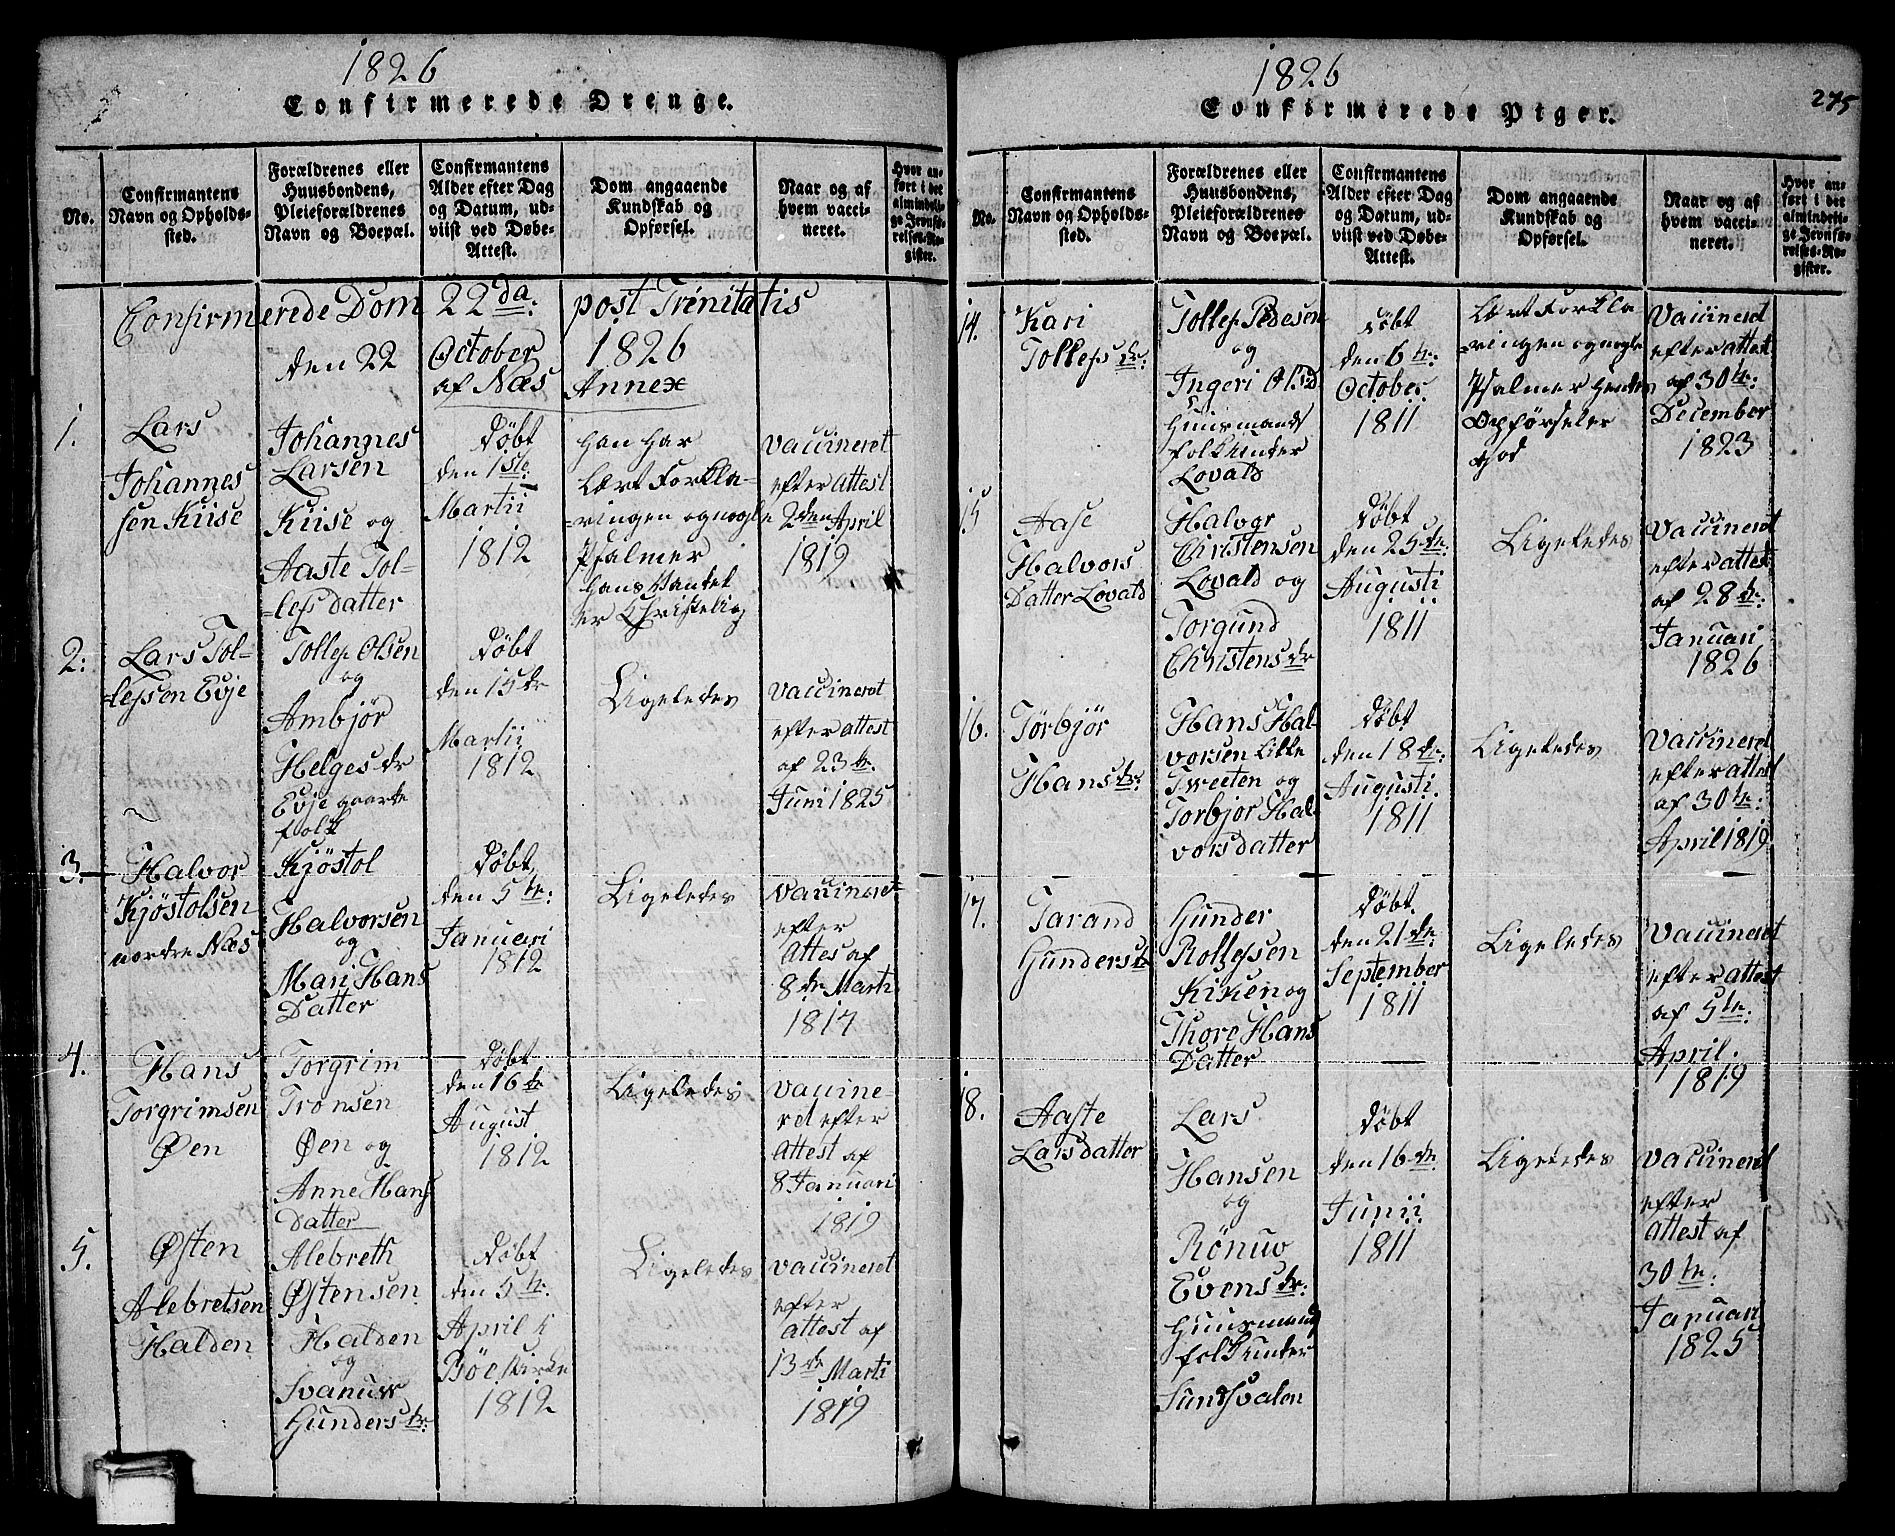 1826
Confirmerede Drenge.
No.
Confirmantens
Navn og Opholds-
sted.
Forældrenes eller
Huusbondens,
Pleieforældrenes
Navn og Boepæl.
Confirmantens
Alder efter Dag
og Datum, ud-
viist ved Døbe-
Attest.
Dom angaaende
Kundskab og
Opførsel.
Naar og af
hvem vacci-
neret.
Hvor an-
ført i det
almindeli-
ge Jevnfø-
relses-Re-
gister.
Confirmerede Dom 22da: post Trinitatis
den 22 October 1826
af Næs Annex
1.
Lars
Johannes
sen Kiise
Johannes
Larsen
Kiise og
Aaste Tol-
lefs datter
døbt
den 1ste:
Martii
1812
han har
lært Forkla-
ringen og nogle
Psalmer
hans Vandel
er Christelig
vaccineret
efter attest
2den April
1819
2:
Lars Tol-
lefsen Evje
Tollef Olsen
og
Ambjør
Helges dr
Evje gaarde
folk
døbt
den 15 de
Martii
1812
Ligeledes
vaccineret
efter attest
af 23 de:
Juni 1825
3.
Halvor
Kjöstolsen
nordre Næs
Kjöstol
Halvorsen
og
Mari Hans
Datter
døbt
den 5 te:
Januari
1812
Ligeledes
vaccineret
efter
attes af
8 de Marti
1817
4.
Hans
Torgrimsen
Øen
Torgrim
Tronsen
Øen og
Anne Hans
datter
døbt
den 16 de
August
1812
Ligeledes
vaccine-
ret efter
attest af
8 Januari
1819
5.
Østen
Alebretsen
Halden
Alebreth
Østensen
Halden
og
Svanuw
Gunders dr:
døbt
den 5 te:
April i
Böe Kirke
1812
Ligeledes
vaccineret
efter
attest af
13 de Marti
1819
1826
Confirmerede Piger.
275
No.
Confirmantens
Navn og Opholds-
sted.
Forældrenes eller
Huusbondens,
Pleieforældrenes
Navn og Boepæl.
Confirmantens
Alder efter Dag
og Datum, ud-
viist ved Døbe-
Attest.
Dom angaaende
Kundskab og
Opførsel.
Naar og af
hvem vacci-
neret.
Hvor an-
ført i det
almindeli-
ge Jevnfø-
relses-Re-
gister.
14.
Kari
Tollefs dr:
Tollef Pedesen
og
Ingeri Ols d
Huusmands
folk under
Lovald
døbt
den 6 te:
October
1811
Lært Forkla
ringen og nogle
Psalmer hendes
Opförsel er
god
vaccineret
efter attest
af 30 te:
December
1823
15
Aase
Halvors
Datter Lovald
Halvor
Christensen
Lovald og
Torgund
Christens dr
døbt
den 25 de:
Augusti
1811
Ligeledes
vaccineret
efter attest
af 28 de:
Januari
1826
16.
Törbjör
Hans dr:
Hans Hal-
vorsen Likke
Tveeten og
Torbjor Hal
vors datter
døbt
den 18 de:
Augusti
1811
Ligeledes
vaccineret
efter attest
af 30 te:
April 1819
17.
Tarand
Gunders dr
Gunder
Rollefsen
Kiken og
Thore Hans
Datter
døbt
den 21 de
September
1811
Ligeledes
vaccineret
efter attest
af 5 te:
April
1819
18.
Aaste
Larsdatter
Lars
Hansen
og
Rönuv
Evens dr:
Huusmand
folk under
Sundsvalen
døbt
den 16 de
Junii
1811
Ligeledes
vaccineret
efter
attest af
30 te:
Januari
1825